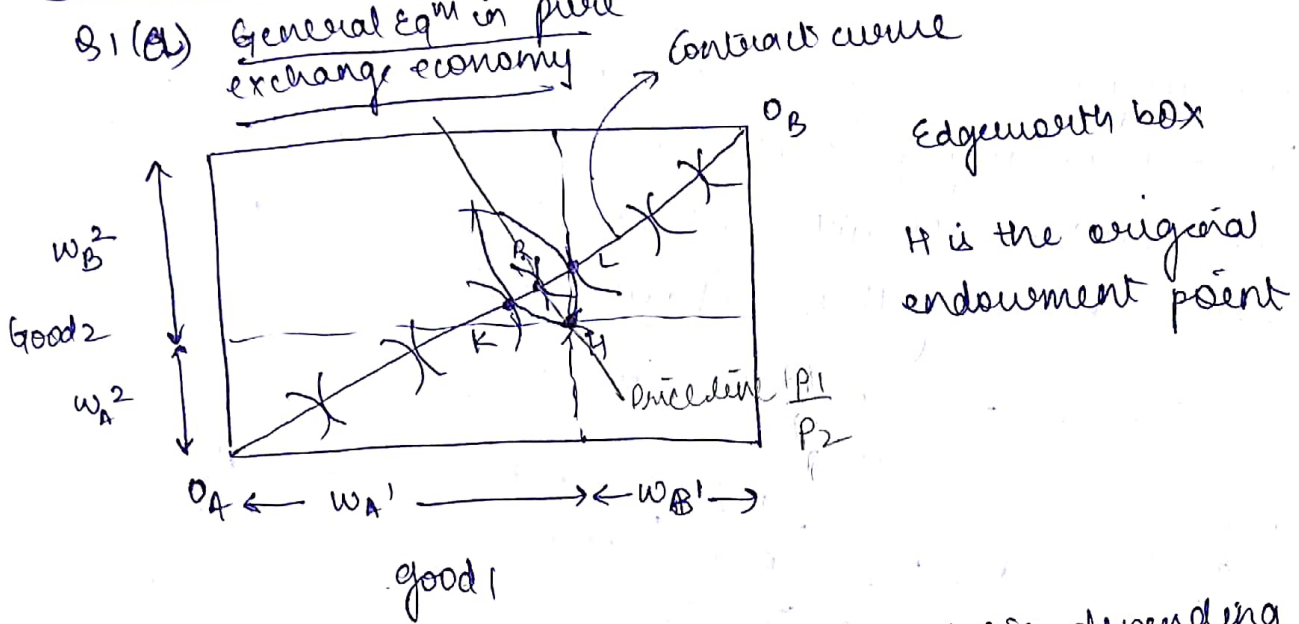 Q1(a) General Eqm in pure
exchange economy
Contract curve
OB
Edgeworth box
H is the original
endowment point
WB2
Good 2
WA2
K
L
H
Price line P1
P2
OA ← WA1 → ← WB1 →
good 1
depending